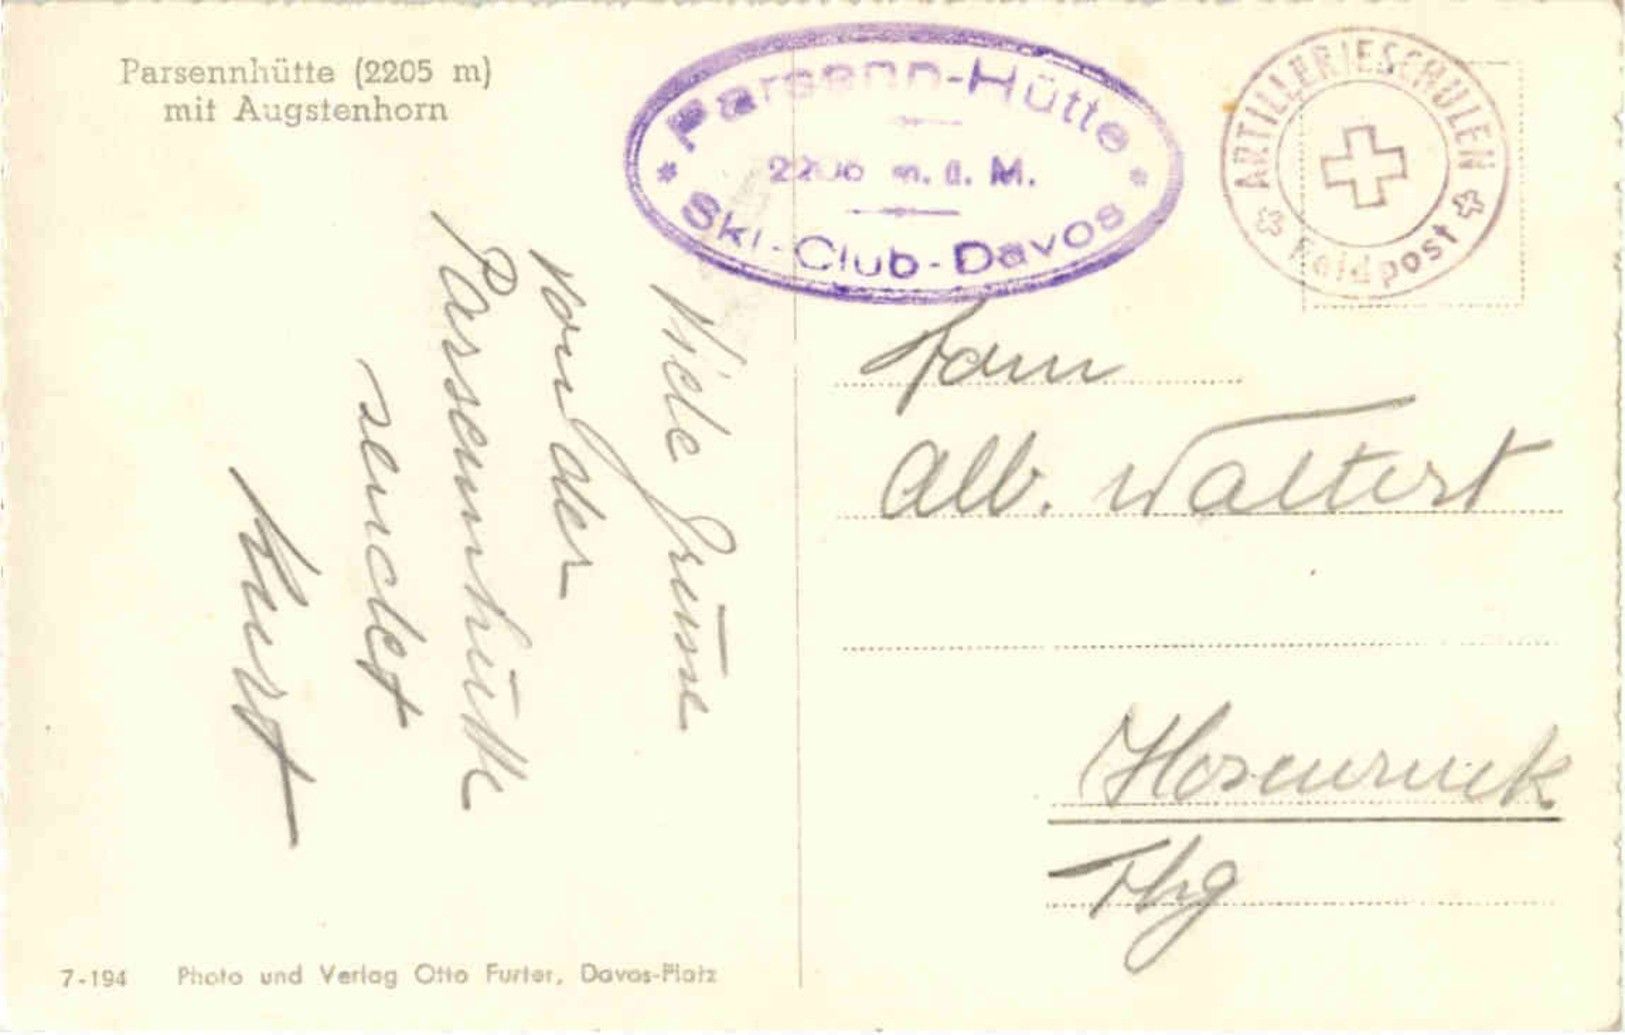 Parsennhütte (2205 m)
mit Augstenhorn
Parsenn-Hütte
m.ü.M.
Ski-Club-Davos
ARTILLERIESCHULEN
Feldpost
Viele Grüsse
von der
Parsennhütte
sendet
Kurt
Fam
Alb. Waltert
Hosenruck
Thg
7-194 Photo und Verlag Otto Furter, Davos-Platz